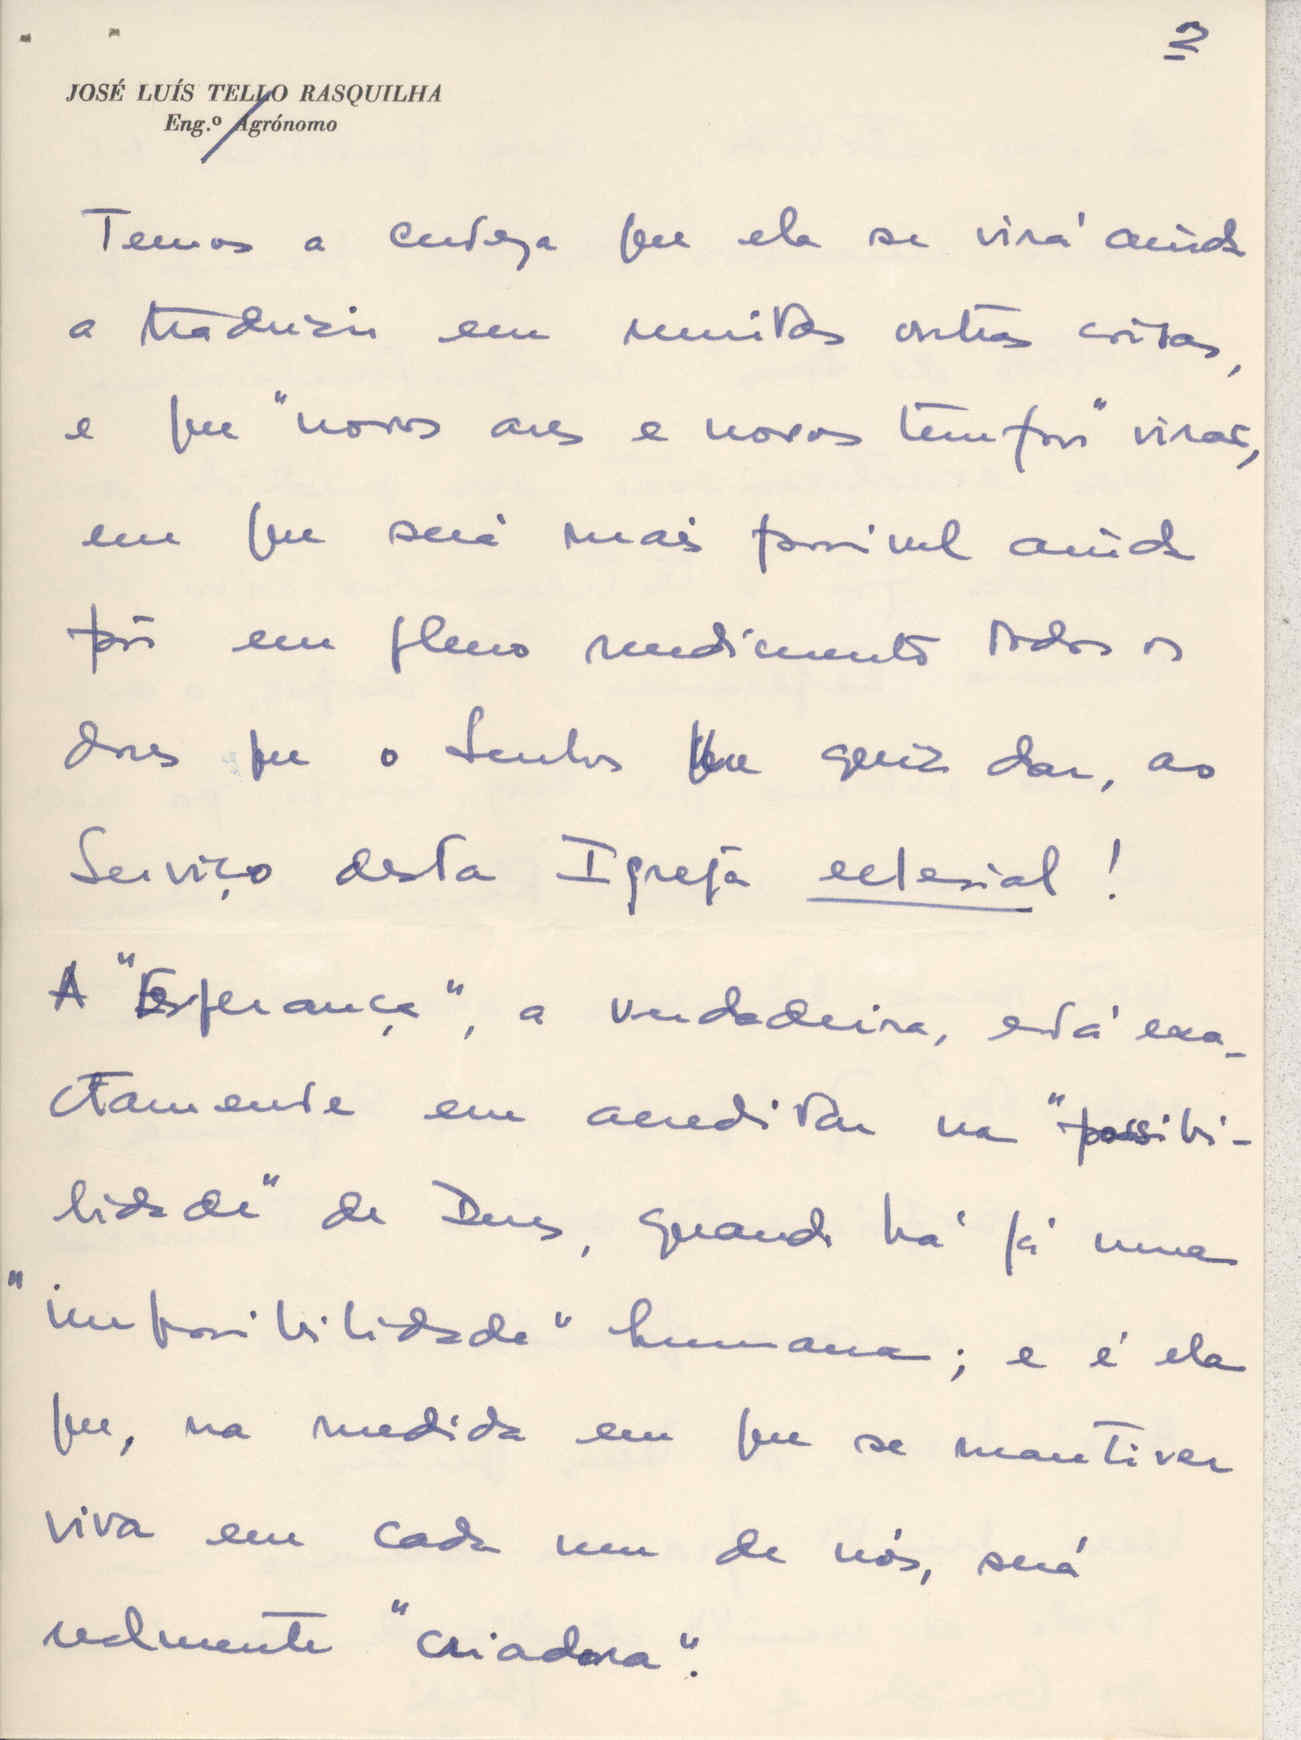 2
JOSÉ LUÍS TELLO RASQUILHA
Eng.º Agrónomo
Temos a certeza que ela se virá ainda
a traduzir em muitas outras coisas,
e que "novos ares e novos tempos" virão,
em que será mais possivel ainda
pôr em pleno rendimento todos os
dons que o Senhor lhe quiz dar, ao
Serviço desta Igreja eclesial!
A "Esperança", a verdadeira, está exa-
ctamente em acreditar na "possibi-
lidade" de Deus, quando há já uma
"impossibilidade" humana; e é ela
que, na medida em que se mantiver
viva em cada um de nós, será
realmente "criadora".